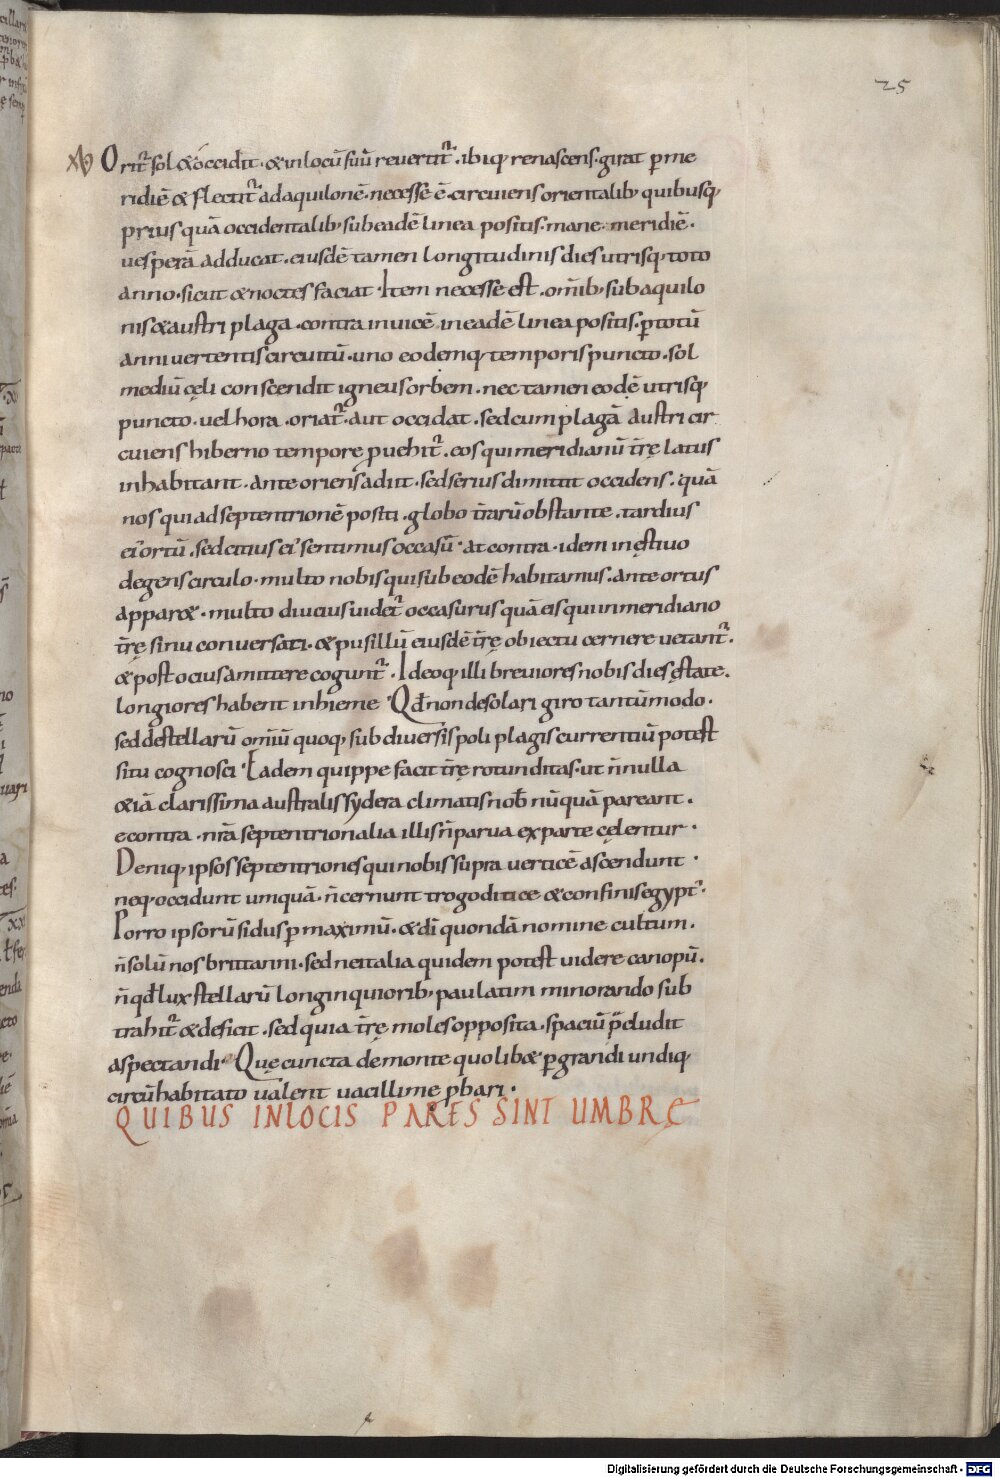 25
Orit᷑ sol & occidit · & in locū suū reuertit᷑ · ibiq; renascens · girat p̱ me
ridiē & flectit᷑ ad aquilonē · necesse ē · circuiens orientalib; quibusq;
prius quā occidentalib; sub eadē linea positis · mane · meridiē ·
uesperā adducat · eiusdē tamen longitudinis dies utrisq; toto
anno · sicut & noctes faciat · Item necesse est · om̄ib; sub aquilo
nis & austri plaga · contra inuicē in eadē linea positis · p̱ totū
anni uertentis circuitū · uno eodemq; temporis puncto · sol
mediū cęli conscendit igneus orbem · nec tamen eodē utrisq;
puncto · uel hora · oriat᷑ · aut occidat · sed cum plagā austri cir
cuiens hiberno tempore p̱uehit᷑ · eos qui meridianū t̄rę latus
inhabitant · ante oriens adiit · sed serius dimittit occidens · quā
nos qui ad septentrionē positi · globo t̄rarū obstante · tardius
ei᷒ ortū · sed citius ei᷒ sentimus occasū · at contra · idem in ęstiuo
degens circulo · multo nobis qui sub eodē habitamus · ante ortus
appar& · multo diucius uidet᷑ occasurus quā eis qui in meridiano
t̄rę sinu conuersati · & pusillū eiusdē t̄rę obiectu cernere uetant᷑ ·
& post ocius amittere cogunt᷑ · Ideoq; illi breuiores nobis dies ęstate ·
longiores habent in hieme · Qđ non de solari giro tantūmodo ·
sed de stellarū omiū quoq; sub diuersis poli plagis currentiū potest
situ cognosci · Eadem quippe facit t̄rę rotunditas · ut n̄ nulla
& iā clarissima australis sydera climatis nob̄ nūquā pareant ·
econtra · nr̄a septentrionalia illis n̄ parua ex parte cęlentur ·
Deniq; ipsos septentriones qui nobis supra uerticē ascendunt ·
neq; occidunt umquā · n̄ cernunt trogoditice & confinis egypt᷒ ·
Porro ipsorū sidus p̱ maximū · & di quondā nomine cultum ·
n̄ solū nos brittanni · sed ne italia quidem potest uidere canopū ·
n̄ qđ lux stellarū longinquiorib; paulatim minorando sub
trahit᷑ & deficit · sed quia t̄rę moles opposita · spaciū p̄cludit
aspectandi · Quę cuncta de monte quolib& p̱grandi undiq;
circū habitato ualent uacillime p̱bari ·
QUIBUS IN LOCIS PARES SINT UMBRĘ
Digitalisierung gefördert durch die Deutsche Forschungsgemeinschaft - DFG